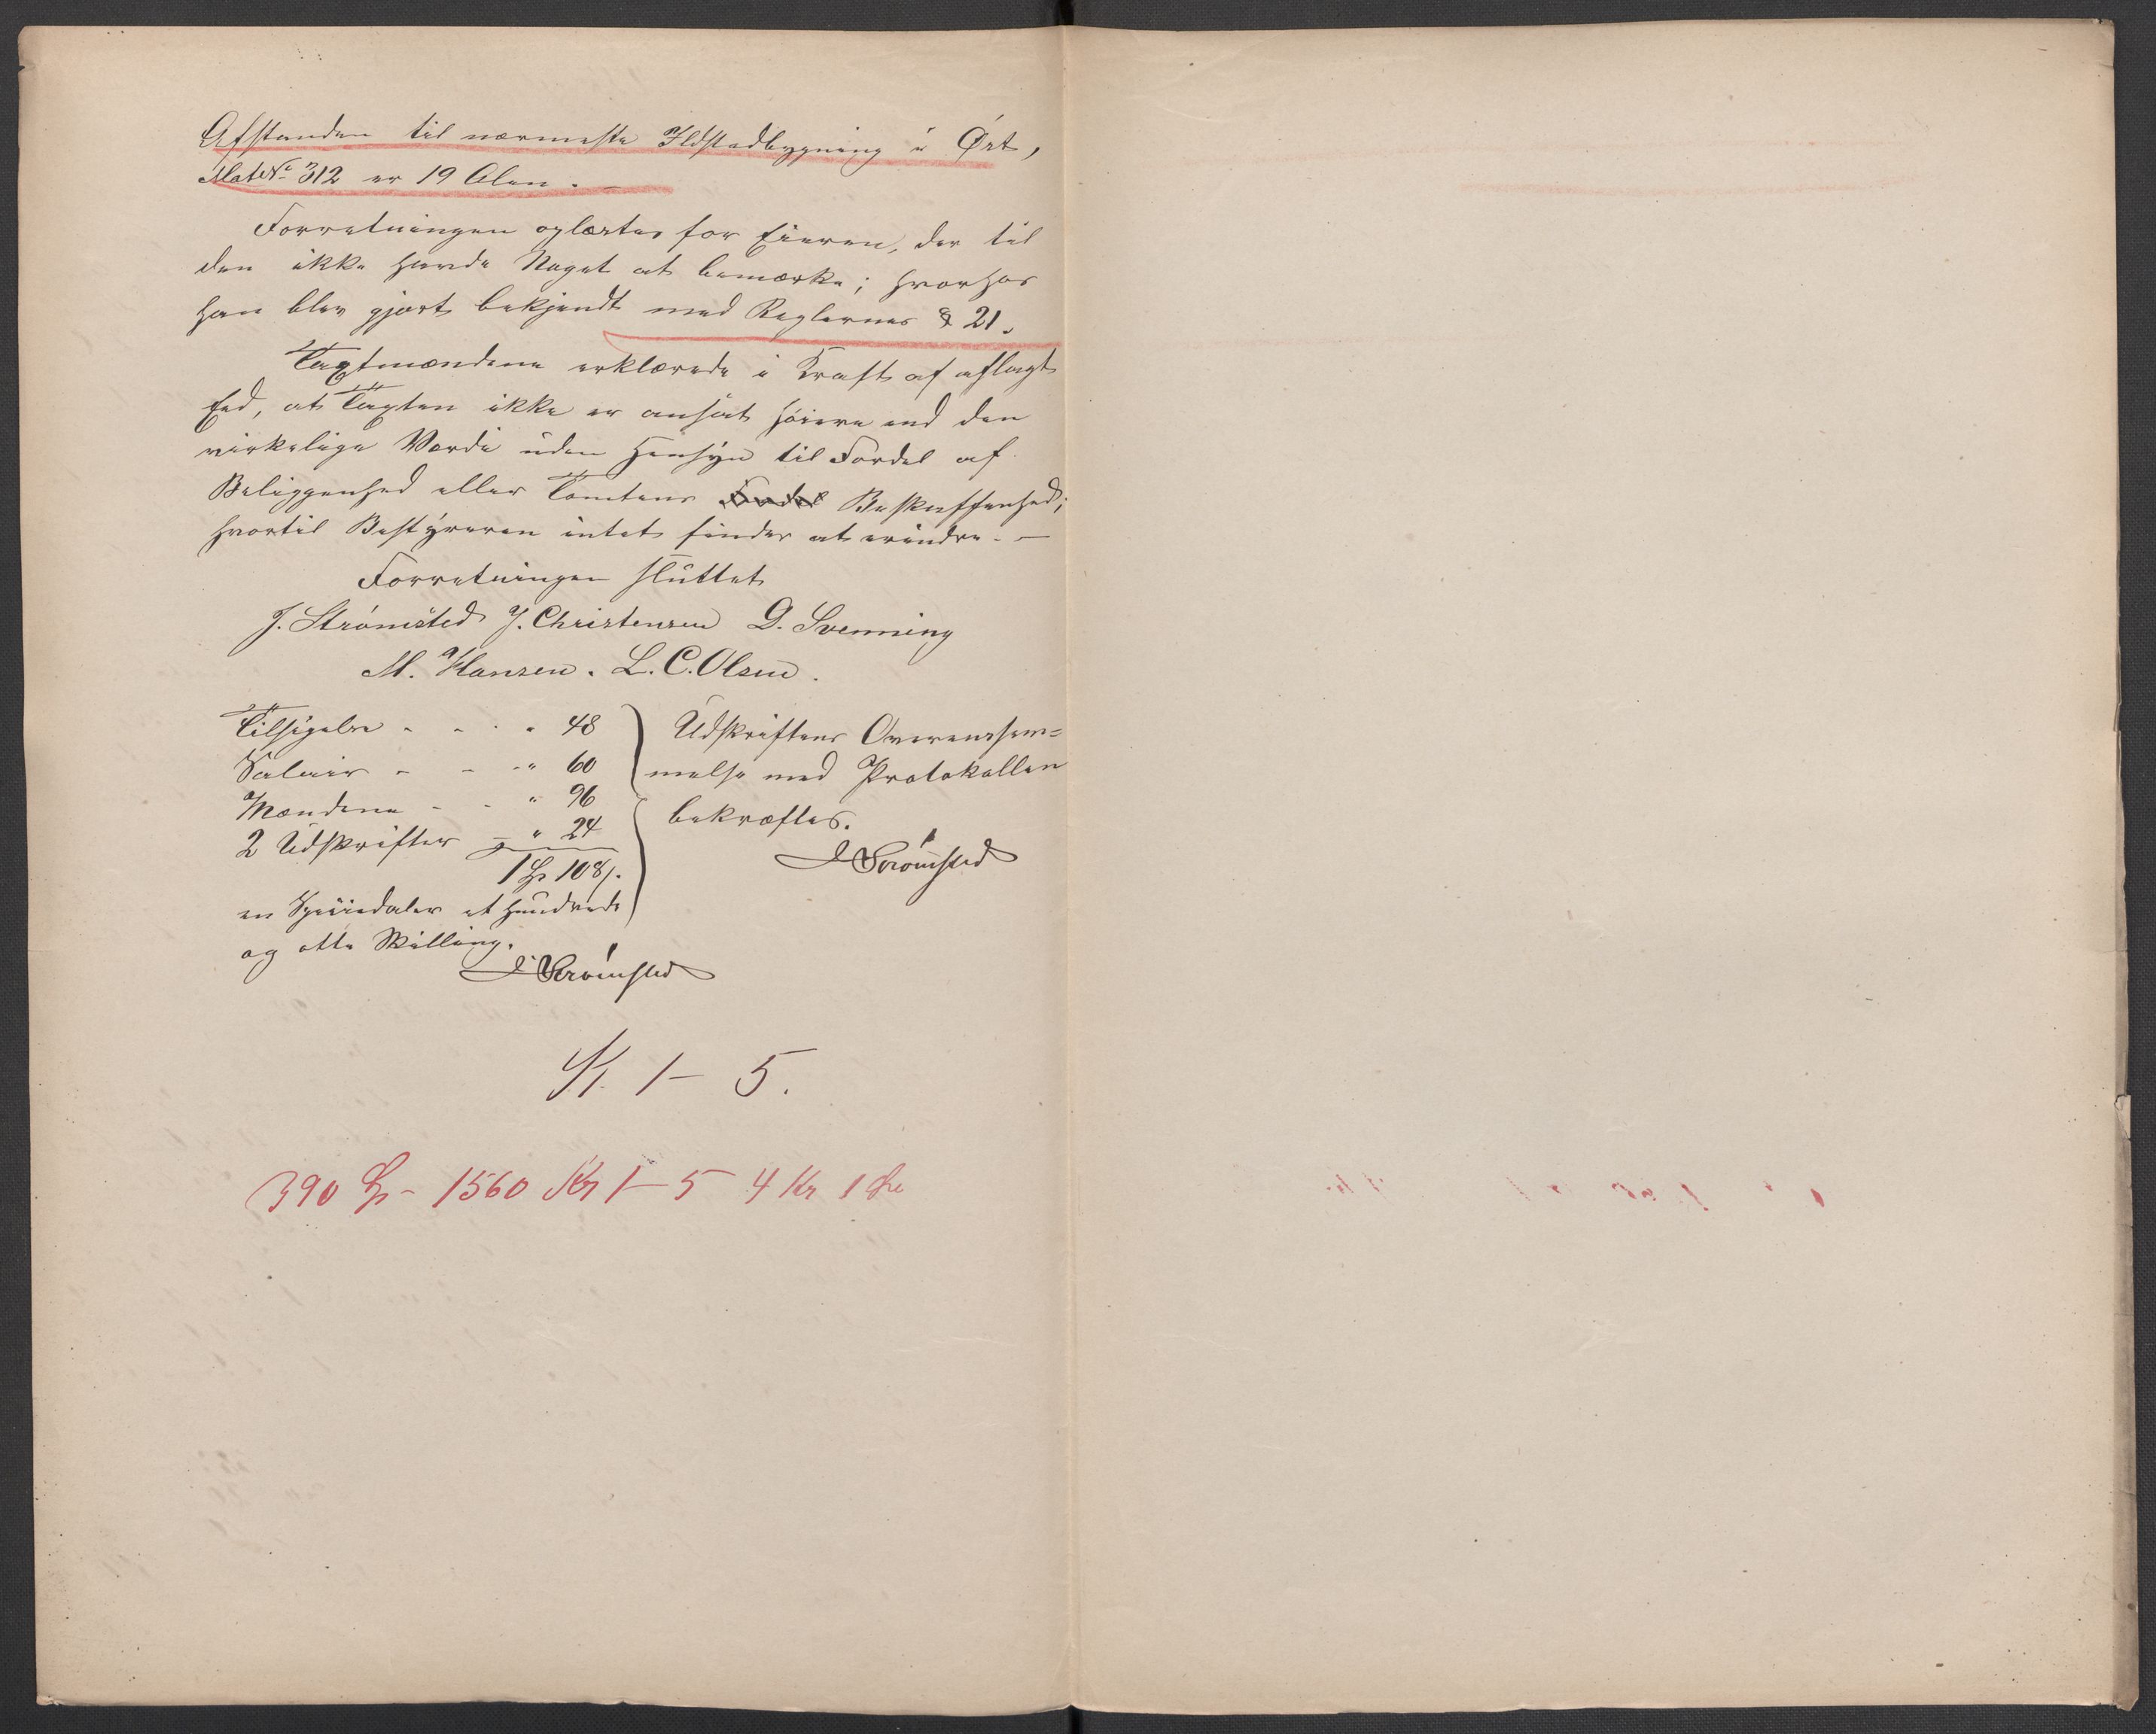 Afstanden til nærmeste Ildstedbygning i Øst,
Mat№ 312 er 19 Alen. —
Forretningen oplæstes for Eieren, der til
den ikke havde Noget at bemærke; hvorhos
han blev gjort bekjendt med Reglernes § 21.
Taxtmændene erklærede i Kraft af aflagt
Eed, at Taxten ikke er ansat høiere end den
virkelige Værdi uden Hensyn til Fordel af
Beliggenhed eller Tomtens Fordel Beskaffenhed;
hvortil Bestyreren intet finder at erindre. —
Forretningen sluttet
J. Strømsted J. Christensen D. Svenning
M. Hansen. L. C. Olsen.
Tilsigelse - - - " 48
Salair - - - " 60
Mændene - - " 96
2 Udskrifter - " 24
1 Sp 108 s.
en Speciedaler et hundrede
og otte Skilling.
J Strømsted
Udskriftens Overenssem=
melse med Protokollen
bekræftes.
J Strømsted
Kl. 1 – 5.
390 Sp - 1560 Kr 1 – 5 4 Kr 1